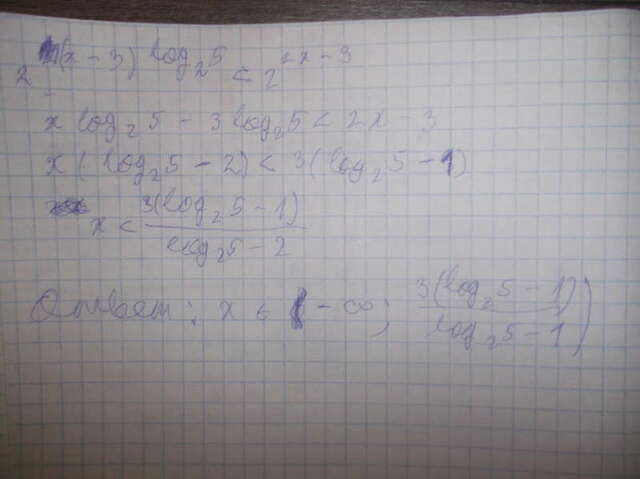 2^{(x-3) log_2 5} < 2^{2x-3}
x log_2 5 - 3 log_2 5 < 2x - 3
x (log_2 5 - 2) < 3 (log_2 5 - 1)
x < \frac{3(log_2 5 - 1)}{log_2 5 - 2}
Ответ: x ∈ (-∞; \frac{3(log_2 5 - 1)}{log_2 5 - 1})